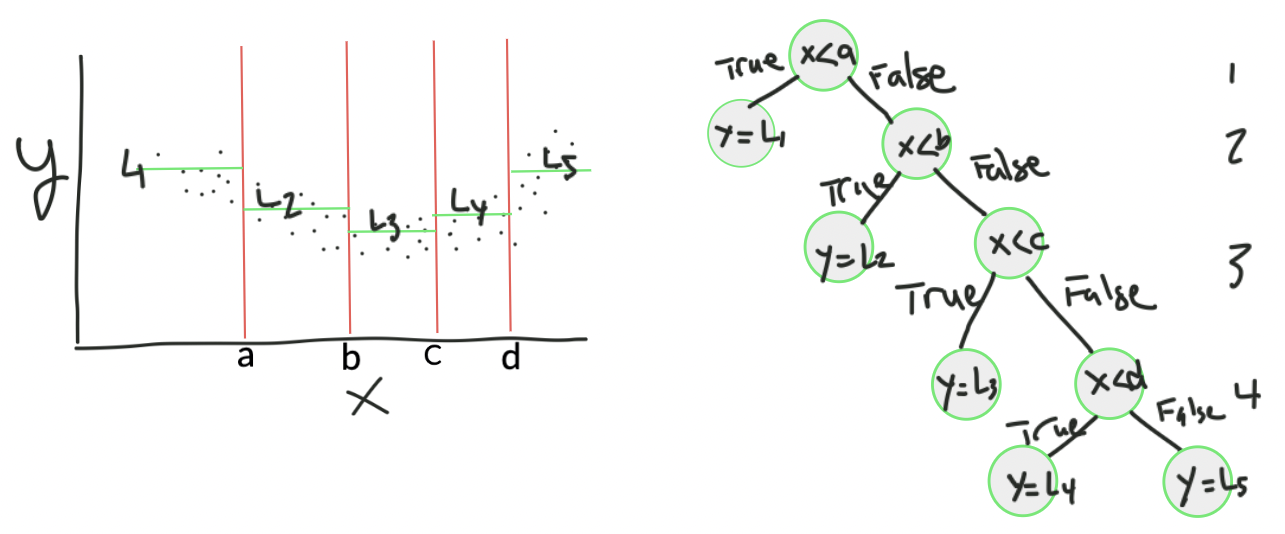 y
L1
L2
L3
L4
L5
a b c d
x
x<a
True
False
1
y=L1
x<b
2
True
False
y=L2
x<c
3
True
False
y=L3
x<d
4
True
False
y=L4
y=L5